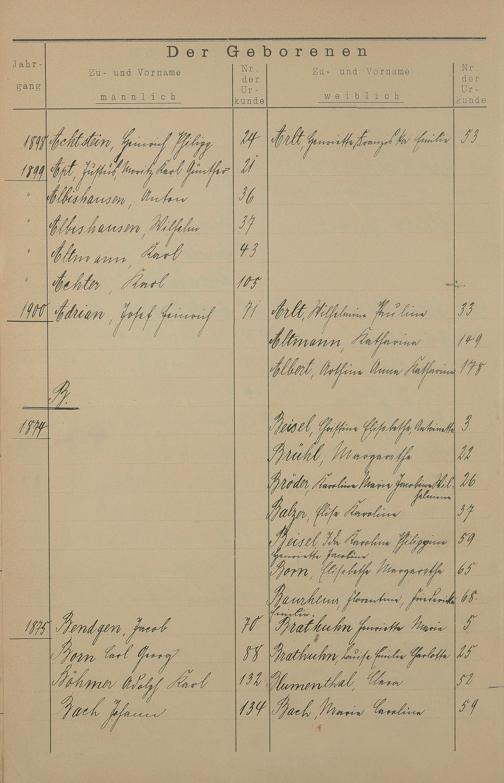 Der Geborenen
Jahr-
gang
Zu- und Vorname
männlich
Nr.
der
Ur-
kunde
Zu- und Vorname
weiblich
Nr.
der
Ur-
kunde
1898 Achtstein, Heinrich Philipp 24 Arlt, Henriette Franziska Emilie 53
1899 Apt, Justus Moritz Karl Günther 21
" Albishausen, Anton 36
" Albishausen, Wilhelm 37
" Altmann, Karl 43
" Achter, Karl 105
1900 Adrian, Josef Heinrich 71 Arlt, Wilhelmine Pauline 33
Altmann, Katharina 149
Albert, Anna Katharine 178
B.
1874 Beisel, Christine Elisabethe, Antoinette 3
Brühl, Margarethe 22
Bröder, Karoline Marie Jacobine Wil- 26
helmine
Balzer, Elise Karoline 37
Beisel, Ida Karoline Philippine 59
Henriette Jacobine
Born, Elisabethe Margarethe 65
Baurhenn, Florentine, Friederike 68
Emilie
1875 Bendgen, Jacob 70 Brathuhn Henriette Marie 5
Born Carl Georg 88 Brathuhn, Louise Emilie Charlotte 25
Böhmer Adolph Karl 132 Blumenthal, Clara 52
Bach Johann 134 Bach, Marie Caroline 59